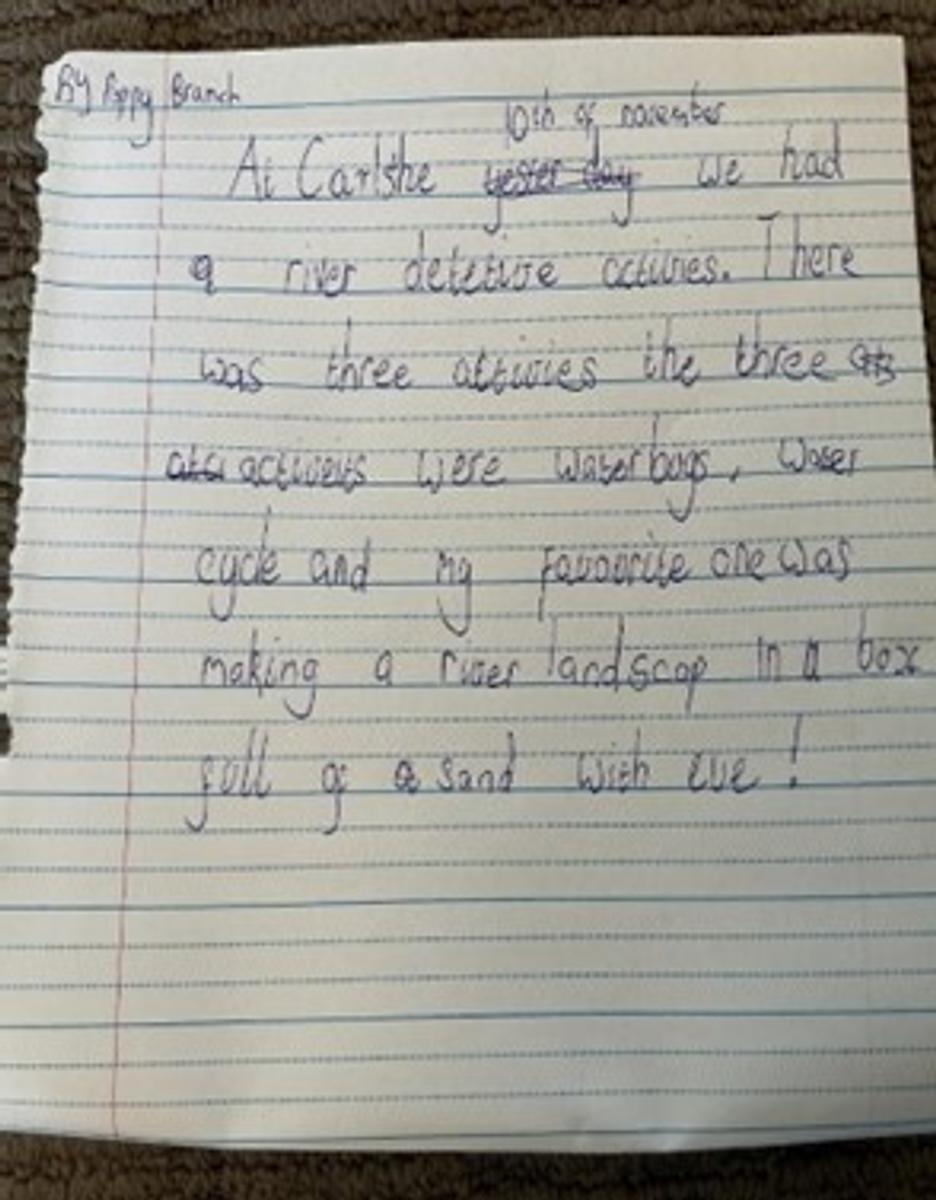 By Poppy Branch
10th of november
At Carlshe yester day we had
a river detetive activies. There
was three attivies the three
activeits were waterbugs, water
cycle and my favourite one was
making a river landscap in a box
full of a sand with eve!